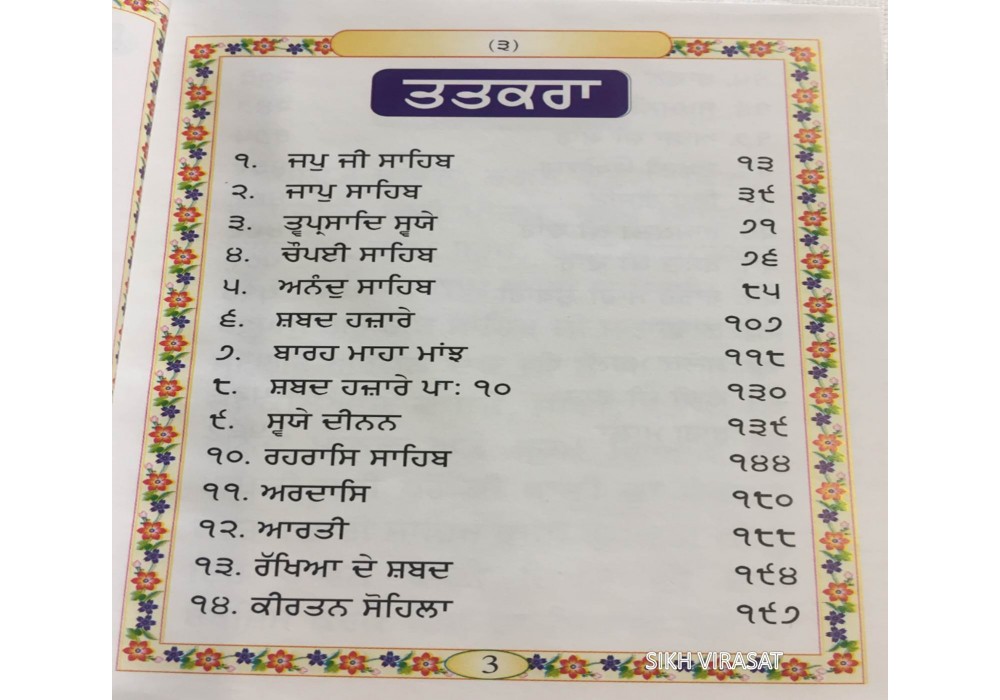 (੩)
ਤਤਕਰਾ
੧. ਜਪੁ ਜੀ ਸਾਹਿਬ ੧੩
੨. ਜਾਪੁ ਸਾਹਿਬ ੩੯
੩. ਤ੍ਵਪ੍ਰਸਾਦਿ ਸ੍ਵਯੇ ੭੧
੪. ਚੌਪਈ ਸਾਹਿਬ ੭੬
੫. ਅਨੰਦੁ ਸਾਹਿਬ ੮੫
੬. ਸ਼ਬਦ ਹਜ਼ਾਰੇ ੧੦੭
੭. ਬਾਰਹ ਮਾਹਾ ਮਾਂਝ ੧੧੮
੮. ਸ਼ਬਦ ਹਜ਼ਾਰੇ ਪਾ: ੧੦ ੧੩੦
੯. ਸ੍ਵਯੇ ਦੀਨਨ ੧੩੯
੧੦. ਰਹਰਾਸਿ ਸਾਹਿਬ ੧੪੪
੧੧. ਅਰਦਾਸਿ ੧੮੦
੧੨. ਆਰਤੀ ੧੮੮
੧੩. ਰੱਖਿਆ ਦੇ ਸ਼ਬਦ ੧੯੪
੧੪. ਕੀਰਤਨ ਸੋਹਿਲਾ ੧੯੭
3
SIKH VIRASAT